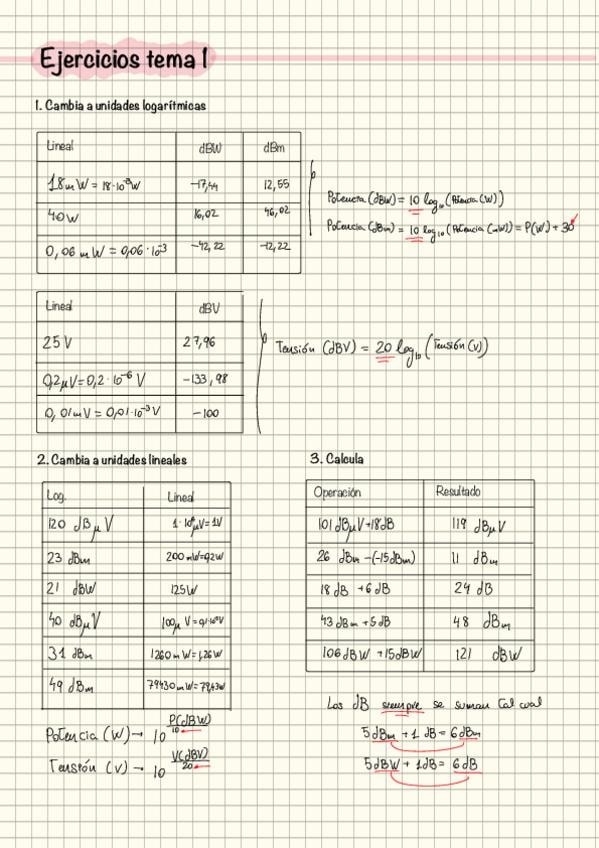 Ejercicios tema 1
1. Cambia a unidades logarítmicas
Lineal dBW dBm
18mW = 18·10⁻³W -17,44 12,55
40W 16,02 46,02
0,06 mW = 0,06·10⁻³ -42,22 -12,22
Potencia (dBW) = 10 log₁₀ (Potencia (W))
Potencia (dBm) = 10 log₁₀ (Potencia (mW)) = P(W) + 30
Lineal dBV
25V 27,96
0,2μV = 0,2·10⁻⁶ V -133,98
0,01mV = 0,01·10⁻³V -100
Tensión (dBV) = 20 log₁₀ (Tensión (V))
2. Cambia a unidades lineales
Log. Lineal
120 dBμV 1·10⁶μV = 1V
23 dBm 200mW=0,2W
21 dBW 125W
40 dBμV 100μV = 0,1·10⁻³V
31 dBm 1260mW = 1,26W
49 dBm 79430mW = 79,43W
Potencia (W) → 10^P(dBW)/10
Tensión (V) → 10^V(dBV)/20
3. Calcula
Operación Resultado
101dBμV+18dB 119 dBμV
26 dBm -(-15dBm) 11 dBm
18dB +6dB 24 dB
43dBm +5dB 48 dBm
106dBW +15dBW 121 dBW
Los dB siempre se suman tal cual
5dBm + 1 dB = 6dBm
5dBW + 1dB = 6 dB